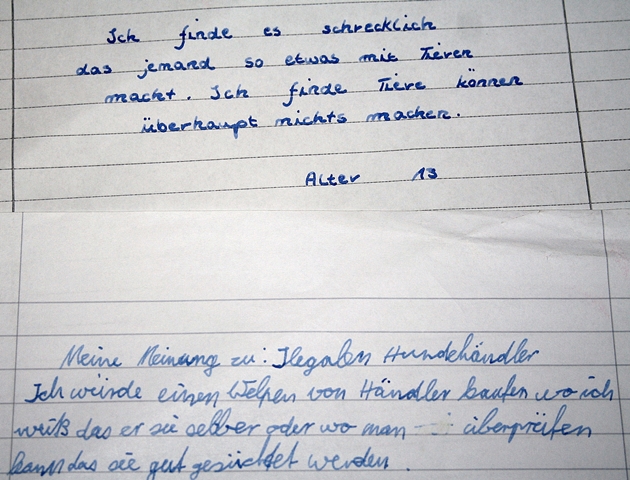 Ich finde es schrecklich
das jemand so etwas mit Tieren
macht. Ich finde Tiere können
überhaupt nichts machen.
Alter 13
Meine Meinung zu: Ilegalen Hundehändler
Ich würde einen Welpen von Händler kaufen wo ich
weiß das er sie selber oder wo man überprüfen
kann das sie gut gezüchtet werden.